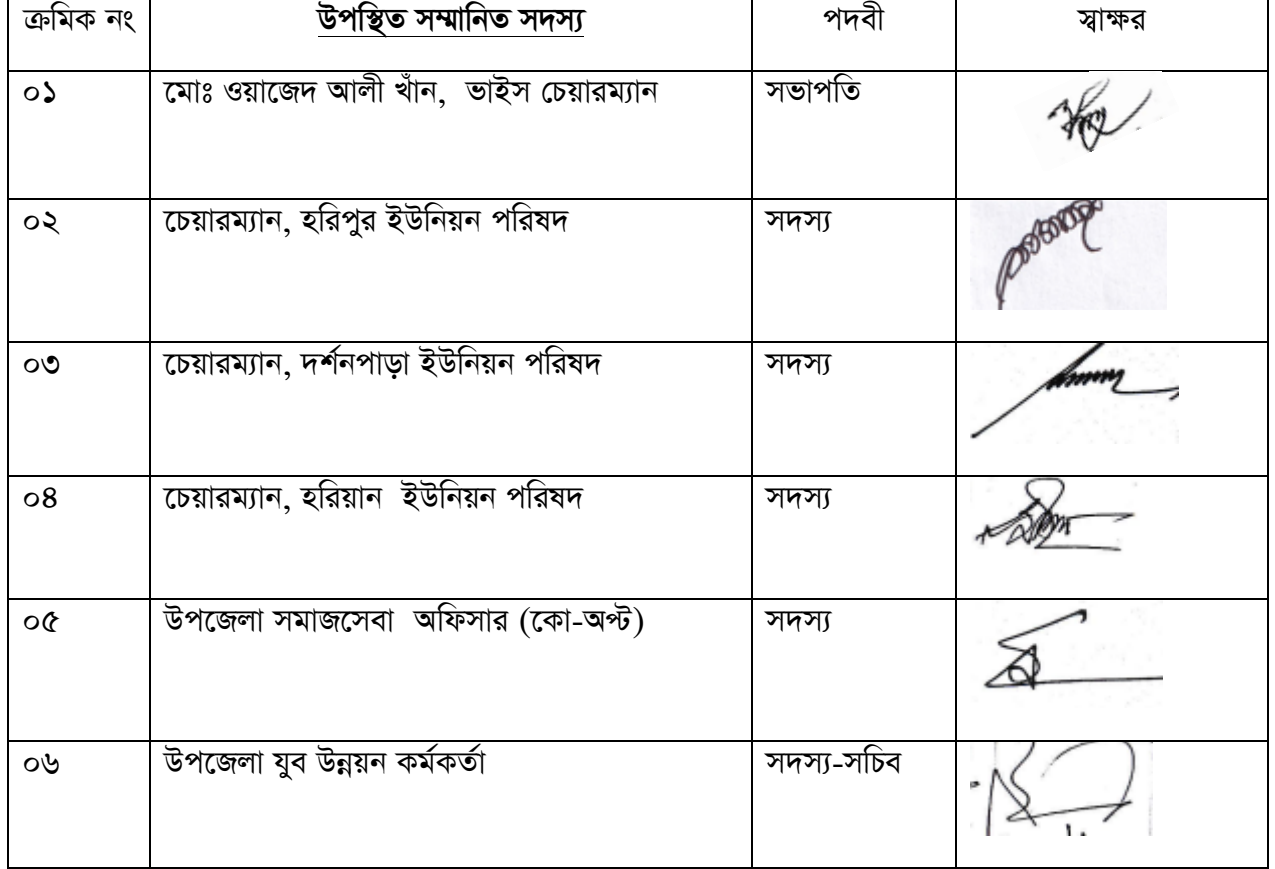 ক্রমিক নং উপস্থিত সম্মানিত সদস্য পদবী স্বাক্ষর
০১ মোঃ ওয়াজেদ আলী খাঁন, ভাইস চেয়ারম্যান সভাপতি
০২ চেয়ারম্যান, হরিপুর ইউনিয়ন পরিষদ সদস্য
০৩ চেয়ারম্যান, দর্শনপাড়া ইউনিয়ন পরিষদ সদস্য
০৪ চেয়ারম্যান, হরিয়ান ইউনিয়ন পরিষদ সদস্য
০৫ উপজেলা সমাজসেবা অফিসার (কো-অপ্ট) সদস্য
০৬ উপজেলা যুব উন্নয়ন কর্মকর্তা সদস্য-সচিব